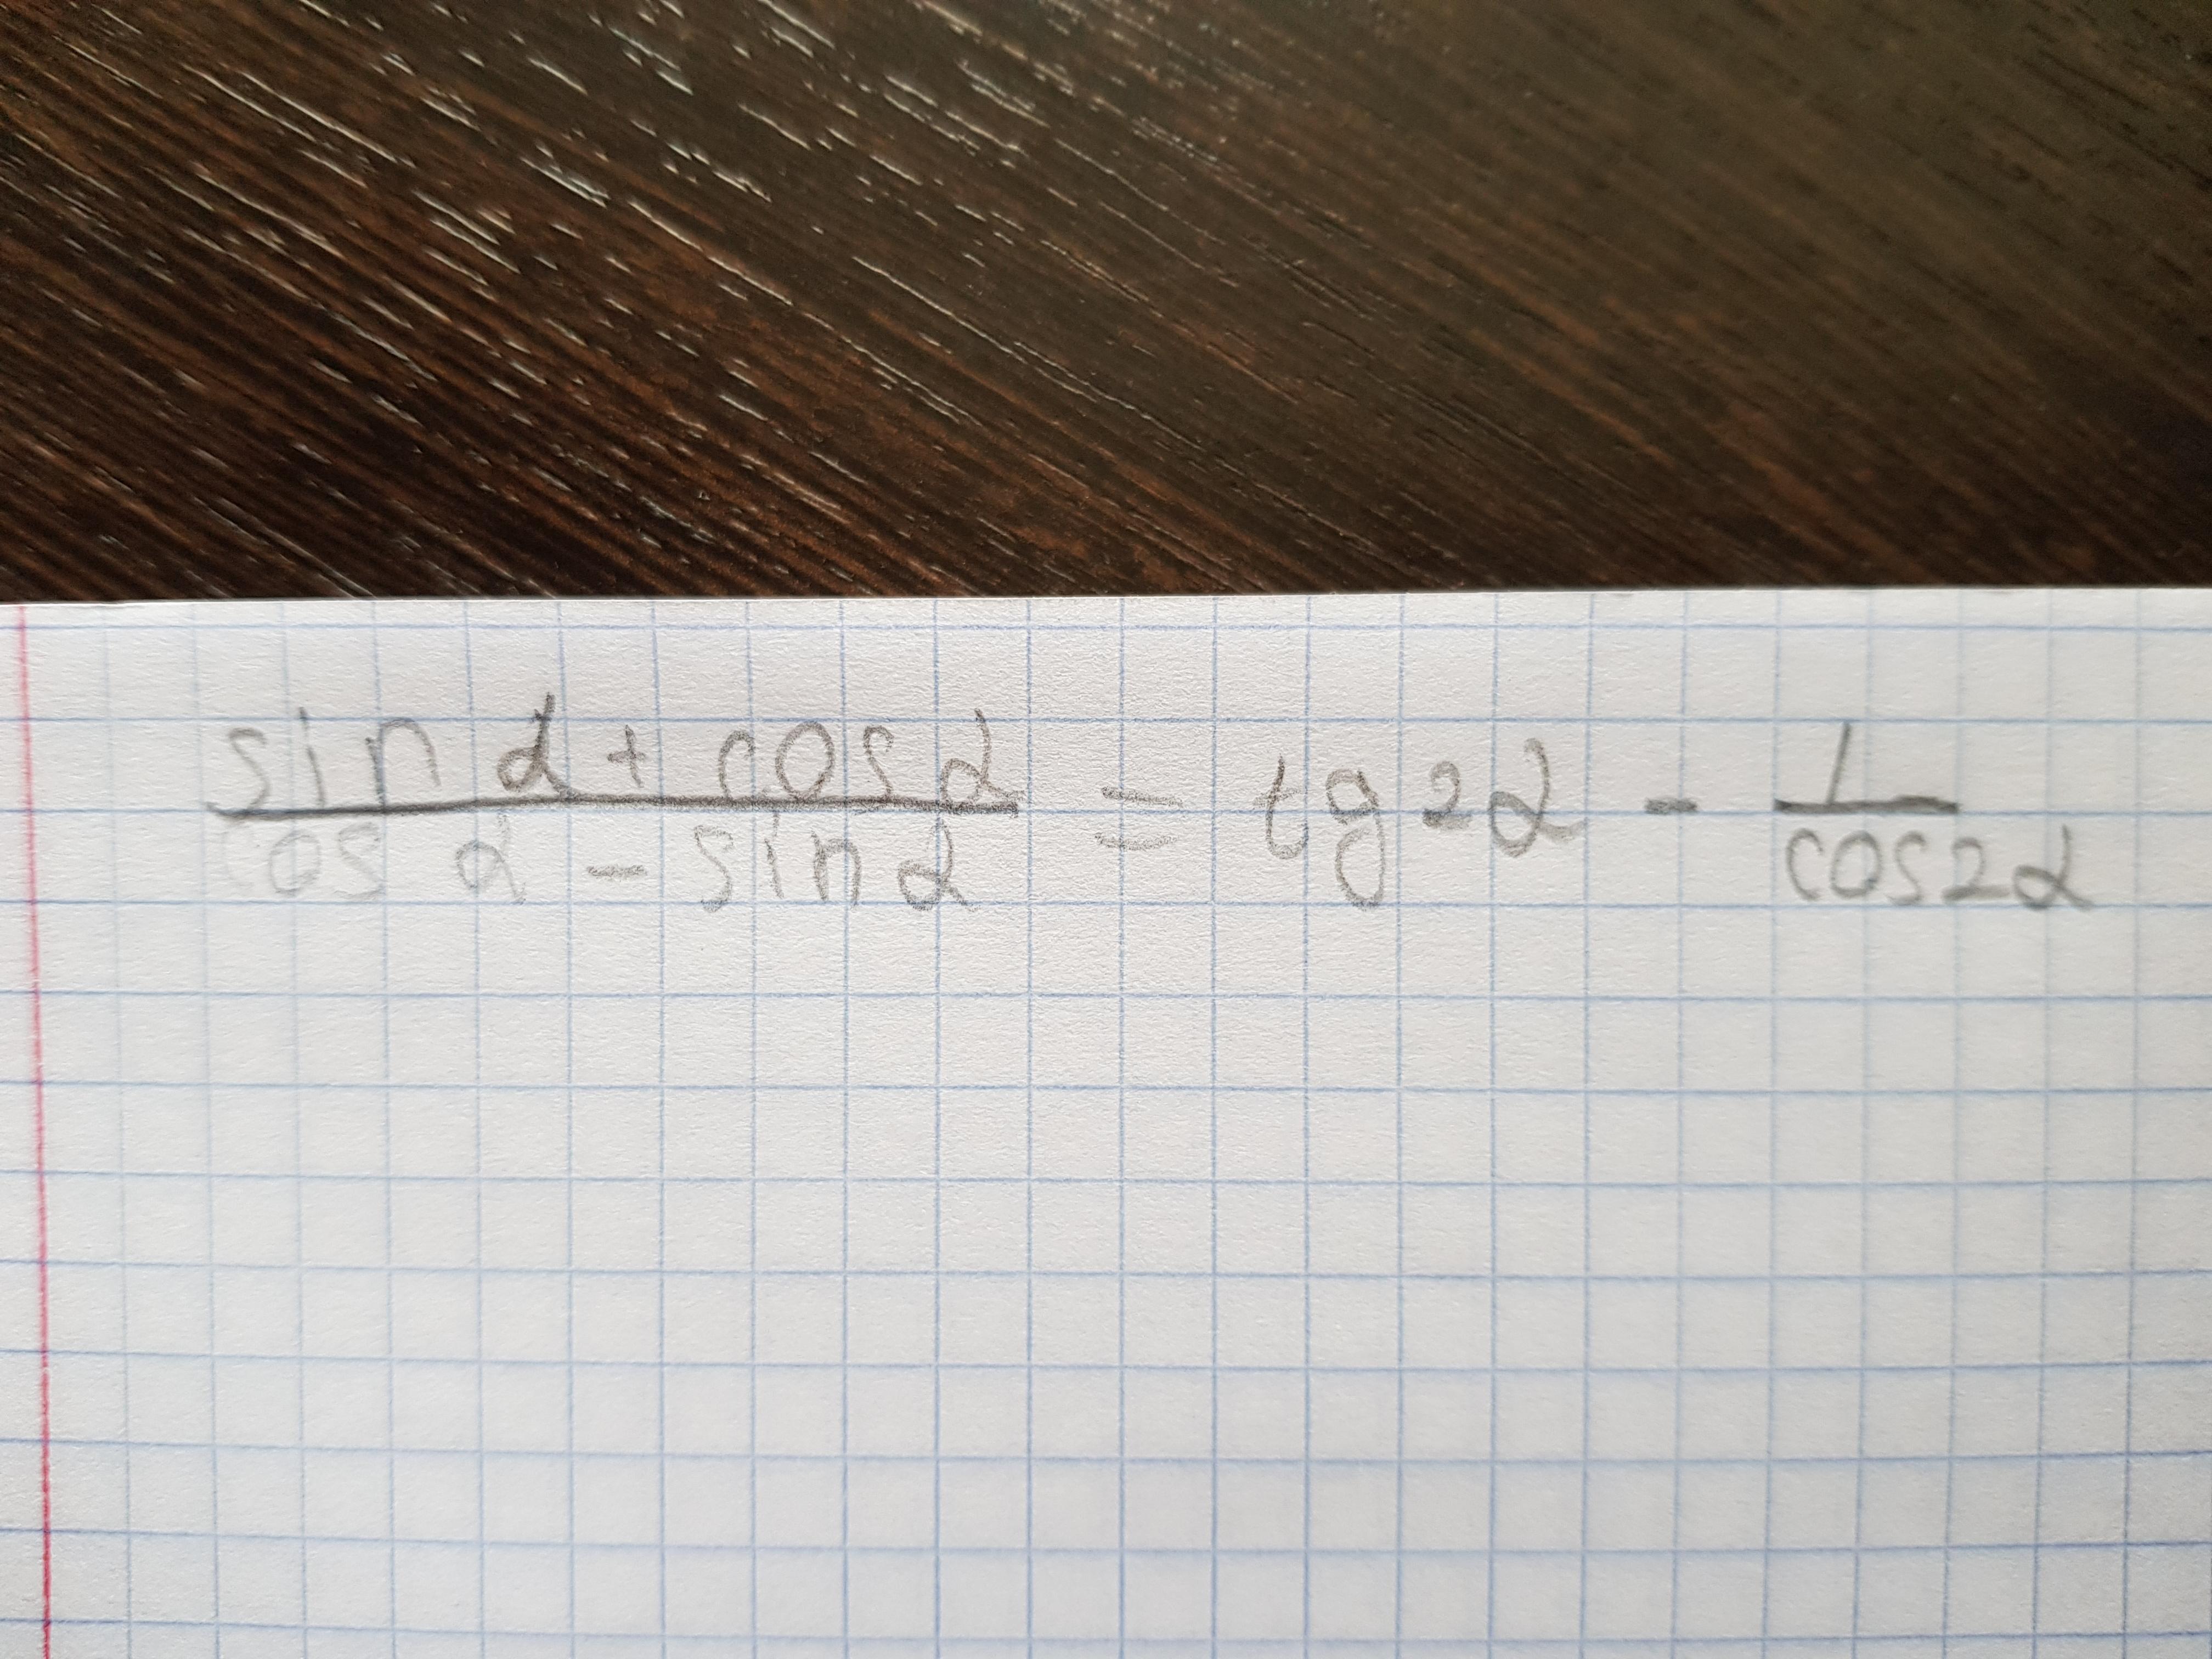 (sin α + cos α)/(cos α - sin α) = tg 2α - 1/(cos 2α)